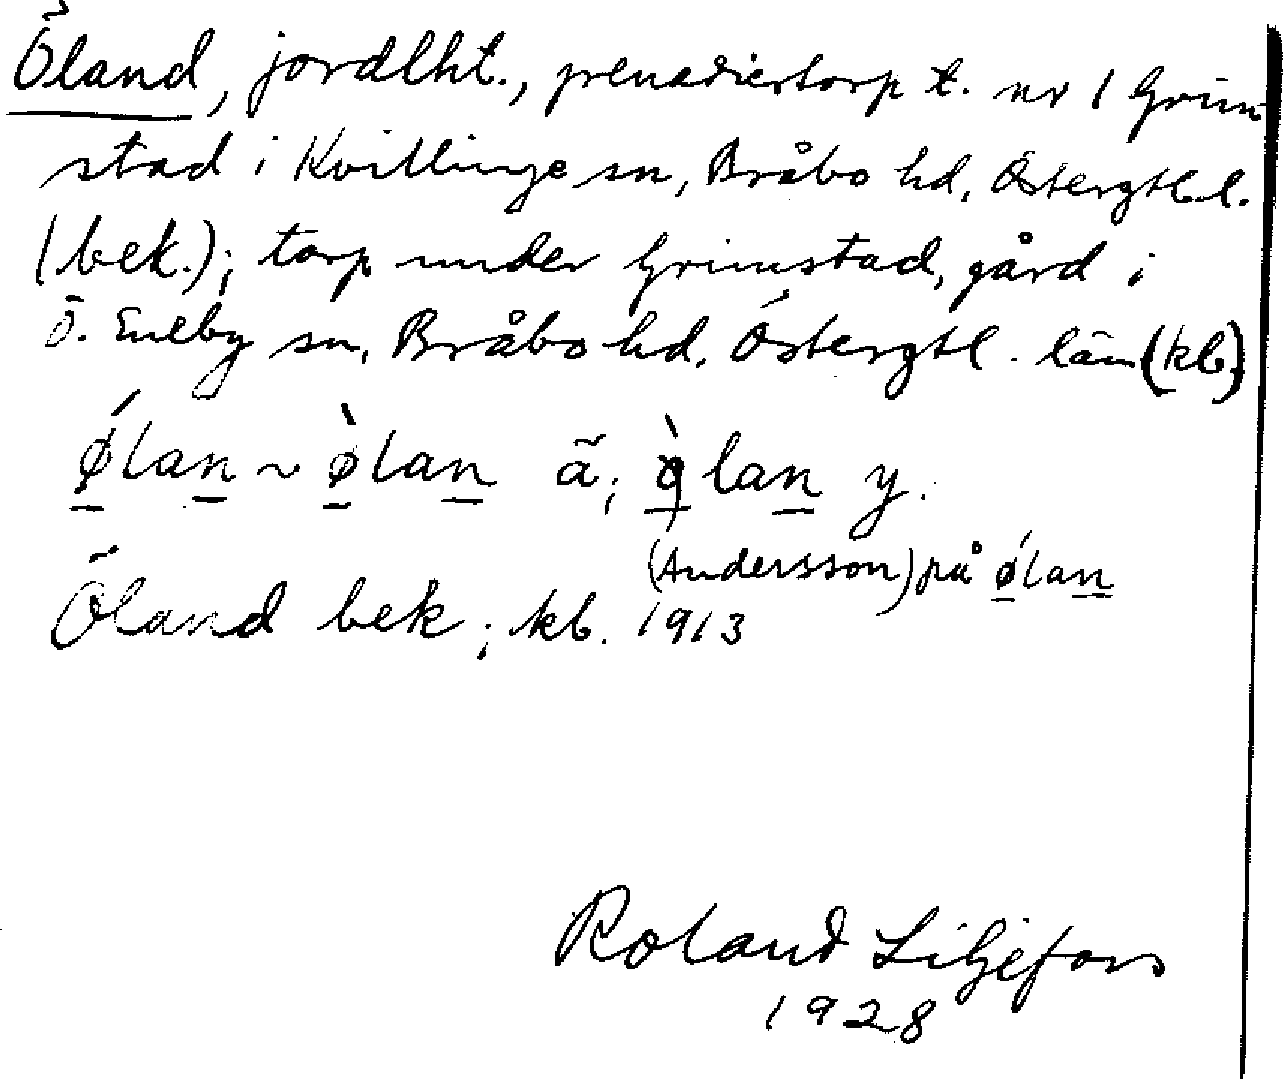 Öland, jordlht., grenadiertorp t. nr 1 Grim
stad i Kvillinge sn, Bråbo hd, Östergtl.l.
(bek.); torp under Grimstad, gård i
Ö. Eneby sn, Bråbo hd, Östergtl. län (kb.)
ǿlan ~ ø̀lan ã; ǫ̀lan y.
(Andersson) på ǿlan
Öland bek; kb. 1913
Roland Liljefors
1928